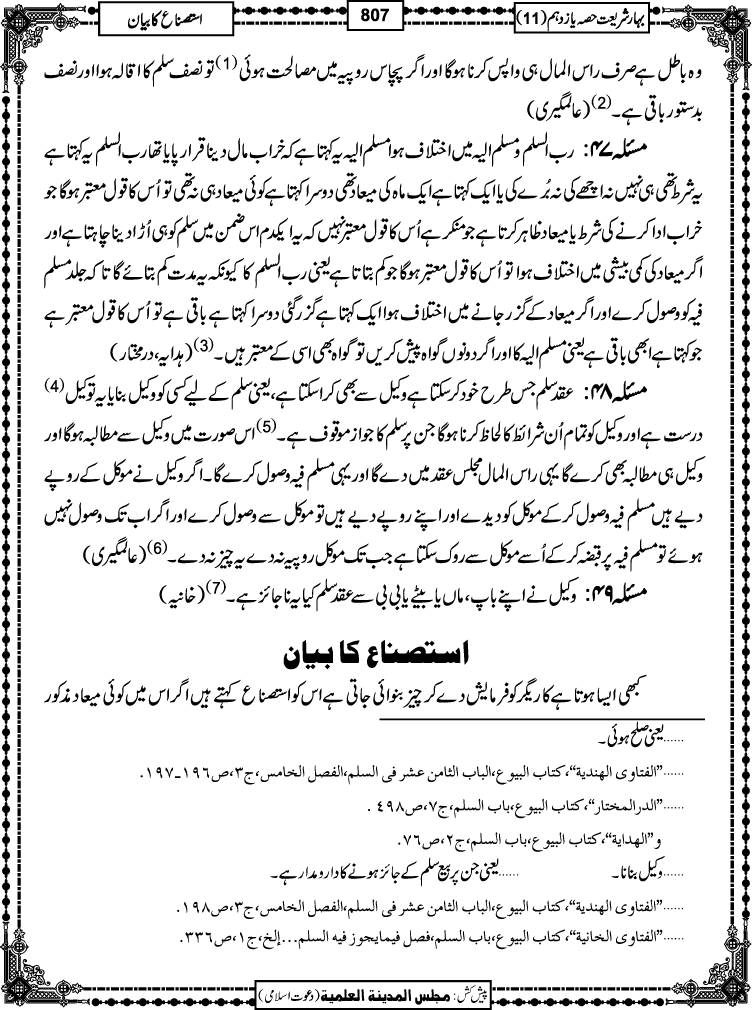 بہار شریعت حصہ یازدہم (11)
807
استصناع کا بیان
وہ باطل ہے صرف راس المال ہی واپس کرنا ہوگا اور اگر پچاس روپیہ میں مصالحت ہوئی (1) تو نصف سلم کا اقالہ ہوا اور نصف
بدستور باقی ہے۔ (2) (عالمگیری)
مسئلہ ۴۷: رب السلم و مسلم الیہ میں اختلاف ہوا مسلم الیہ یہ کہتا ہے کہ خراب مال دینا قرار پایا تھا رب السلم یہ کہتا ہے
یہ شرط تھی ہی نہیں نہ اچھے کی نہ بُرے کی یا ایک کہتا ہے ایک ماہ کی میعاد تھی دوسرا کہتا ہے کوئی میعاد ہی نہ تھی تو اُس کا قول معتبر ہوگا جو
خراب ادا کرنے کی شرط یا میعاد ظاہر کرتا ہے جو منکر ہے اُس کا قول معتبر نہیں کہ یہ ایکدم اس ضمن میں سلم کو ہی اُڑا دینا چاہتا ہے اور
اگر میعاد کی کمی بیشی میں اختلاف ہوا تو اُس کا قول معتبر ہوگا جو کم بتاتا ہے یعنی رب السلم کا کیونکہ یہ مدت کم بتائے گا تا کہ جلد مسلم
فیہ کو وصول کرے اور اگر میعاد کے گزر جانے میں اختلاف ہوا ایک کہتا ہے گزر گئی دوسرا کہتا ہے باقی ہے تو اُس کا قول معتبر ہے
جو کہتا ہے ابھی باقی ہے یعنی مسلم الیہ کا اور اگر دونوں گواہ پیش کریں تو گواہ بھی اسی کے معتبر ہیں۔ (3) (ہدایہ، درمختار)
مسئلہ ۴۸: عقد سلم جس طرح خود کر سکتا ہے وکیل سے بھی کرا سکتا ہے، یعنی سلم کے لیے کسی کو وکیل بنایا یہ توکیل (4)
درست ہے اور وکیل کو تمام اُن شرائط کا لحاظ کرنا ہوگا جن پر سلم کا جواز موقوف ہے۔ (5) اس صورت میں وکیل سے مطالبہ ہوگا اور
وکیل ہی مطالبہ بھی کرے گا یہی راس المال مجلس عقد میں دے گا اور یہی مسلم فیہ وصول کرے گا۔ اگر وکیل نے موکل کے روپے
دیے ہیں مسلم فیہ وصول کرکے موکل کو دیدے اور اپنے روپے دیے ہیں تو موکل سے وصول کرے اور اگر اب تک وصول نہیں
ہوئے تو مسلم فیہ پر قبضہ کرکے اُسے موکل سے روک سکتا ہے جب تک موکل روپیہ نہ دے یہ چیز نہ دے۔ (6) (عالمگیری)
مسئلہ ۴۹: وکیل نے اپنے باپ، ماں یا بیٹے یا بی بی سے عقد سلم کیا یہ ناجائز ہے۔ (7) (خانیہ)
استصناع کا بیان
کبھی ایسا ہوتا ہے کاریگر کو فرمایش دے کر چیز بنوائی جاتی ہے اس کو استصناع کہتے ہیں اگر اس میں کوئی میعاد مذکور
......یعنی صلح ہوئی۔
......"الفتاوی الھندیة"،کتاب البیوع،الباب الثامن عشر فی السلم،الفصل الخامس،ج۳،ص۱۹۶۔۱۹۷.
......"الدرالمختار"، کتاب البیوع،باب السلم،ج۷،ص۴۹۸ .
و"الھدایة"،کتاب البیوع،باب السلم،ج۲،ص۷۶.
......وکیل بنانا۔ ......یعنی جن پر بیع سلم کے جائز ہونے کا دارومدار ہے۔
......"الفتاوی الھندیة"،کتاب البیوع،الباب الثامن عشر فی السلم،الفصل الخامس،ج۳،ص۱۹۸.
......"الفتاوی الخانیة"،کتاب البیوع،باب السلم،فصل فیمایجوز فیه السلم...إلخ،ج۱،ص۳۳۶.
پیش کش: مجلس المدینة العلمیة (دعوت اسلامی)